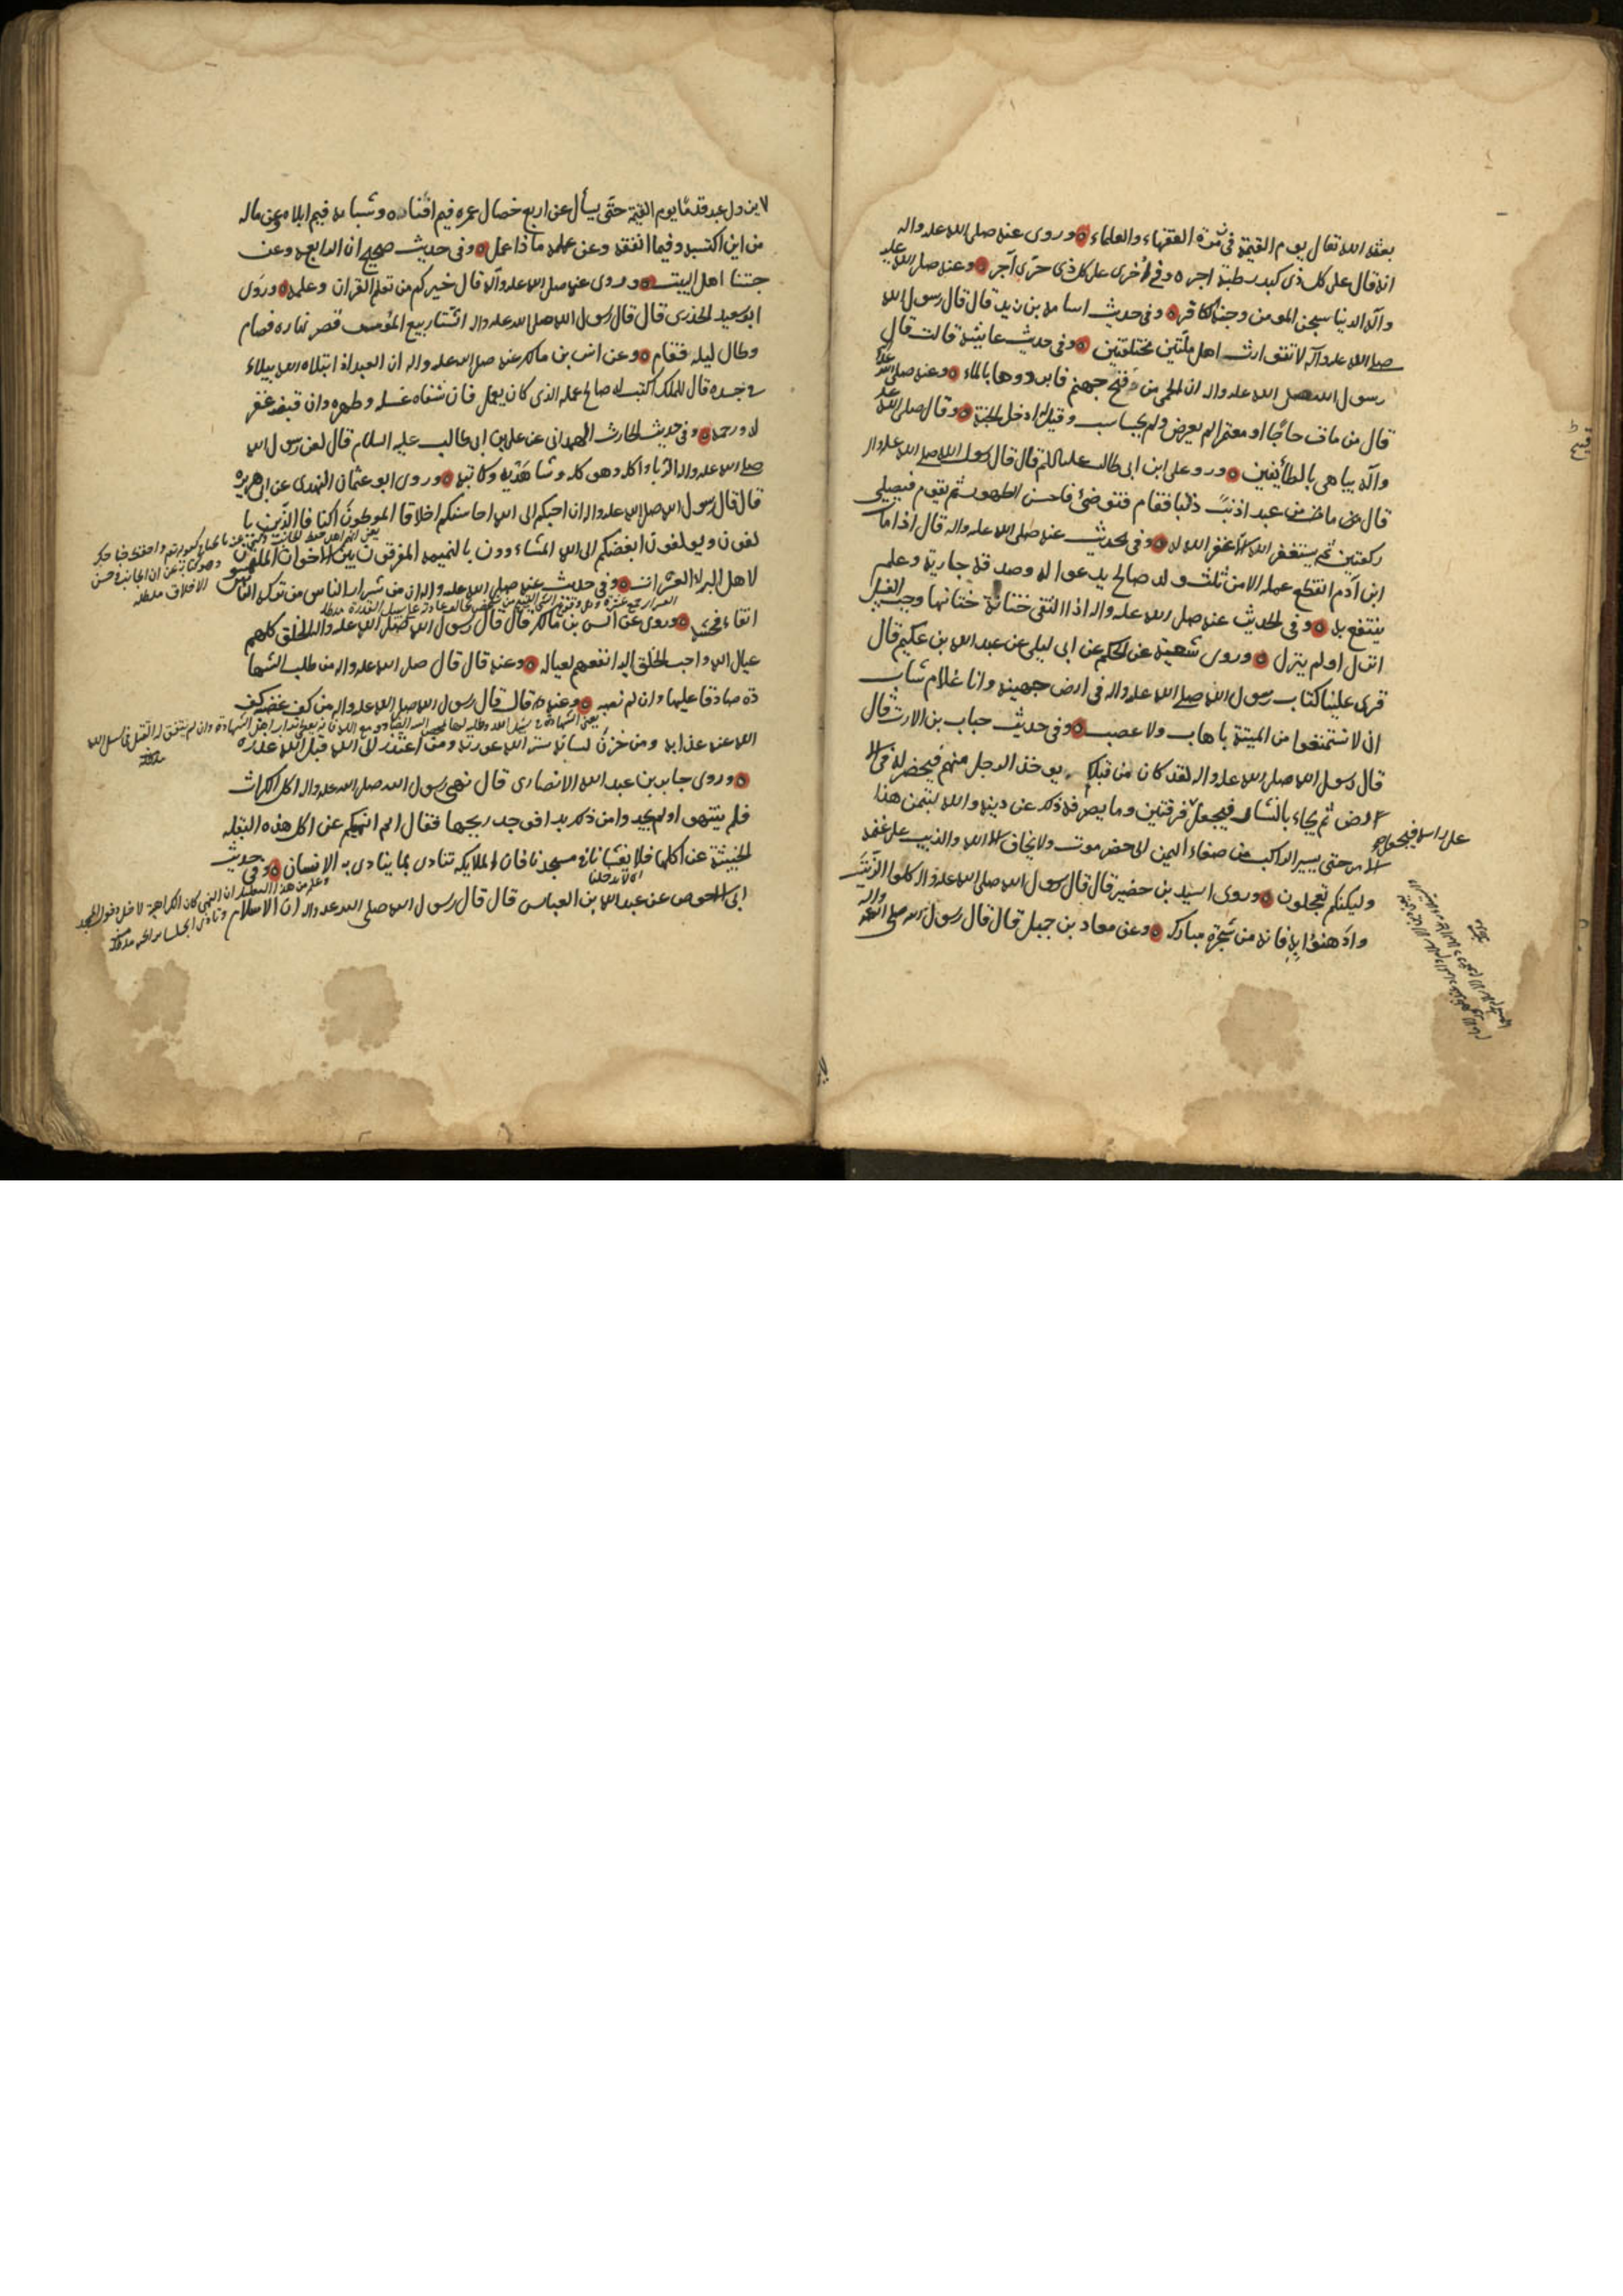 بعثه الله تعالى يوم القيمة في زمرة الفقهاء والعلماء ه وروى عنه صلى الله عليه واله
انه قال على كل ذى كبد رطبة اجر ه وفي اخرى على كل ذى حرى اجر ه وعنه صلى الله عليه
وآله الدنيا سجن المومن وجنة الكافر ه وفي حديث اسامة بن زيد قال قال رسول الله
صلى الله عليه وآله لا تتوارث اهل ملتين مختلفتين ه وفي حديث عايشة قالت قال
رسول الله صلى الله عليه واله ان الحمى من فيح جهنم فابردوها بالماء ه وعنه صلى الله عليه
قال من مات حاجا او معتمرا لم يعرض ولم يحاسب وقيل له ادخل الجنة ه وقال صلى الله عليه
وآله يباهى بالطائفين ه وروى على ابن ابى طالب عليه السلم قال قال رسول الله صلى الله عليه واله
قال من ما من عبد اذنب ذنبا فقام فتوضئ فاحسن الطهور ثم يقوم فيصلى
ركعتين ثم يستغفر الله الا غفر الله له ه وفي الحديث عنه صلى الله عليه واله قال اذا مات
ابن آدم انقطع عمله الا من ثلث ولد صالح يدعوا له وصدقة جارية وعلم
ينتفع به ه وفي الحديث عنه صلى الله عليه واله اذا التقى ختانه ختانها وجب الغسل
انزل او لم ينزل ه وروى شعبة عن الحكم عن ابى ليلى عن عبد الله بن عكيم قال
قرى علينا كتاب رسول الله صلى الله عليه واله في ارض جهينة وانا غلام شاب
ان لا تستمتعوا من الميتة باهاب ولا عصب ه وفي حديث خباب بن الارث قال
قال رسول الله صلى الله عليه واله لقد كان من قبلكم يوخذ الرجل منهم فيحفر له في الا
رض ثم يجاء بالمنشار فيجعل فرقتين وما يصرفه ذلك عن دينه والله ليتمن هذا
على راسه فيجعل
الامر حتى يسير الراكب من صنعاء اليمن الى حضرموت ولا يخاف الا الله والذيب على غنمه
وليكنكم تعجلون ه وروى اسيد بن حضير قال قال رسول الله صلى الله عليه واله كلوا الزيت
وادهنوا به فانه من شجرة مباركة ه وعن معاد بن جبل قال قال رسول الله صلى الله عليه واله
لا يزول عبد قدما يوم القيمة حتى يسأل عن اربع خصال عمره فيم افناه ه وشبابه فيم ابلاه وعن ماله
من اين اكتسبه وفيما انفقه وعن علمه ماذا عمل ه وفي حديث صحيح ان الرابعه وعن
حبنا اهل البيت ه وروى عنه صلى الله عليه وآله قال خيركم من تعلم القران وعلمه ه وروى
ابو سعيد الخدرى قال قال رسول الله صلى الله عليه واله الشتا ربيع المؤمن قصر نهاره فصام
وطال ليله فقام ه وعن انس بن مالك عنه صلى الله عليه واله ان العبد اذا ابتلاه الله ببلاء
في جسده قال للملك اكتب له صالح عمله الذى كان يعمل فان شفاه غسله وطهره وان قبضه غفر
له ورحمه ه وفي حديث الحارث الهمدانى عن على بن ابى طالب عليه السلام قال لعن رسول الله
صلى الله عليه واله الرباء اكله وموكله وشاهديه وكاتبه ه وروى ابو عثمان النهدى عن ابى هريره
قال قال رسول الله صلى الله عليه واله ان احبكم الى الله احاسنكم اخلاقا الموطون اكنافا الذين يا
لفون ويولفون ابغضكم الى الله المشاءوون بالنميمه المفرقون بين الاخوان الملتمسون
لاهل البراء العثرات ه وفي حديث عنه صلى الله عليه واله ان من شرار الناس من تركه الناس
اتقاء فحشه ه وروى عن انس بن مالك قال قال رسول الله صلى الله عليه واله الخلق كلهم
عيال الله واحب الخلق اليه انفعهم لعياله ه وعنه قال قال صلى الله عليه واله من طلب الشها
دة صادقا عليها وان لم تصبه ه وعنه قال قال رسول الله صلى الله عليه واله من كف غضبه كف
الله عنه عذابه ومن خزن لسانه ستر الله عورته ومن اعتذر الى الله قبل الله عذره
ه وروى جابر بن عبد الله الانصارى قال نهى رسول الله صلى الله عليه واله اكل الكراث
فلم ينتهوا ولم يجدوا من ذلك بدا فوجد ريحها فقال الم انهيكم عن اكل هذه البقله
الخبيثة عن اكلها فلا يغشانا في مسجدنا فان الملايكه تتاذى بما يتاذى به الانسان ه وفي حديث
ابى الاحوص عن عبد الله بن العباس قال قال رسول الله صلى الله عليه واله ان الاسلام